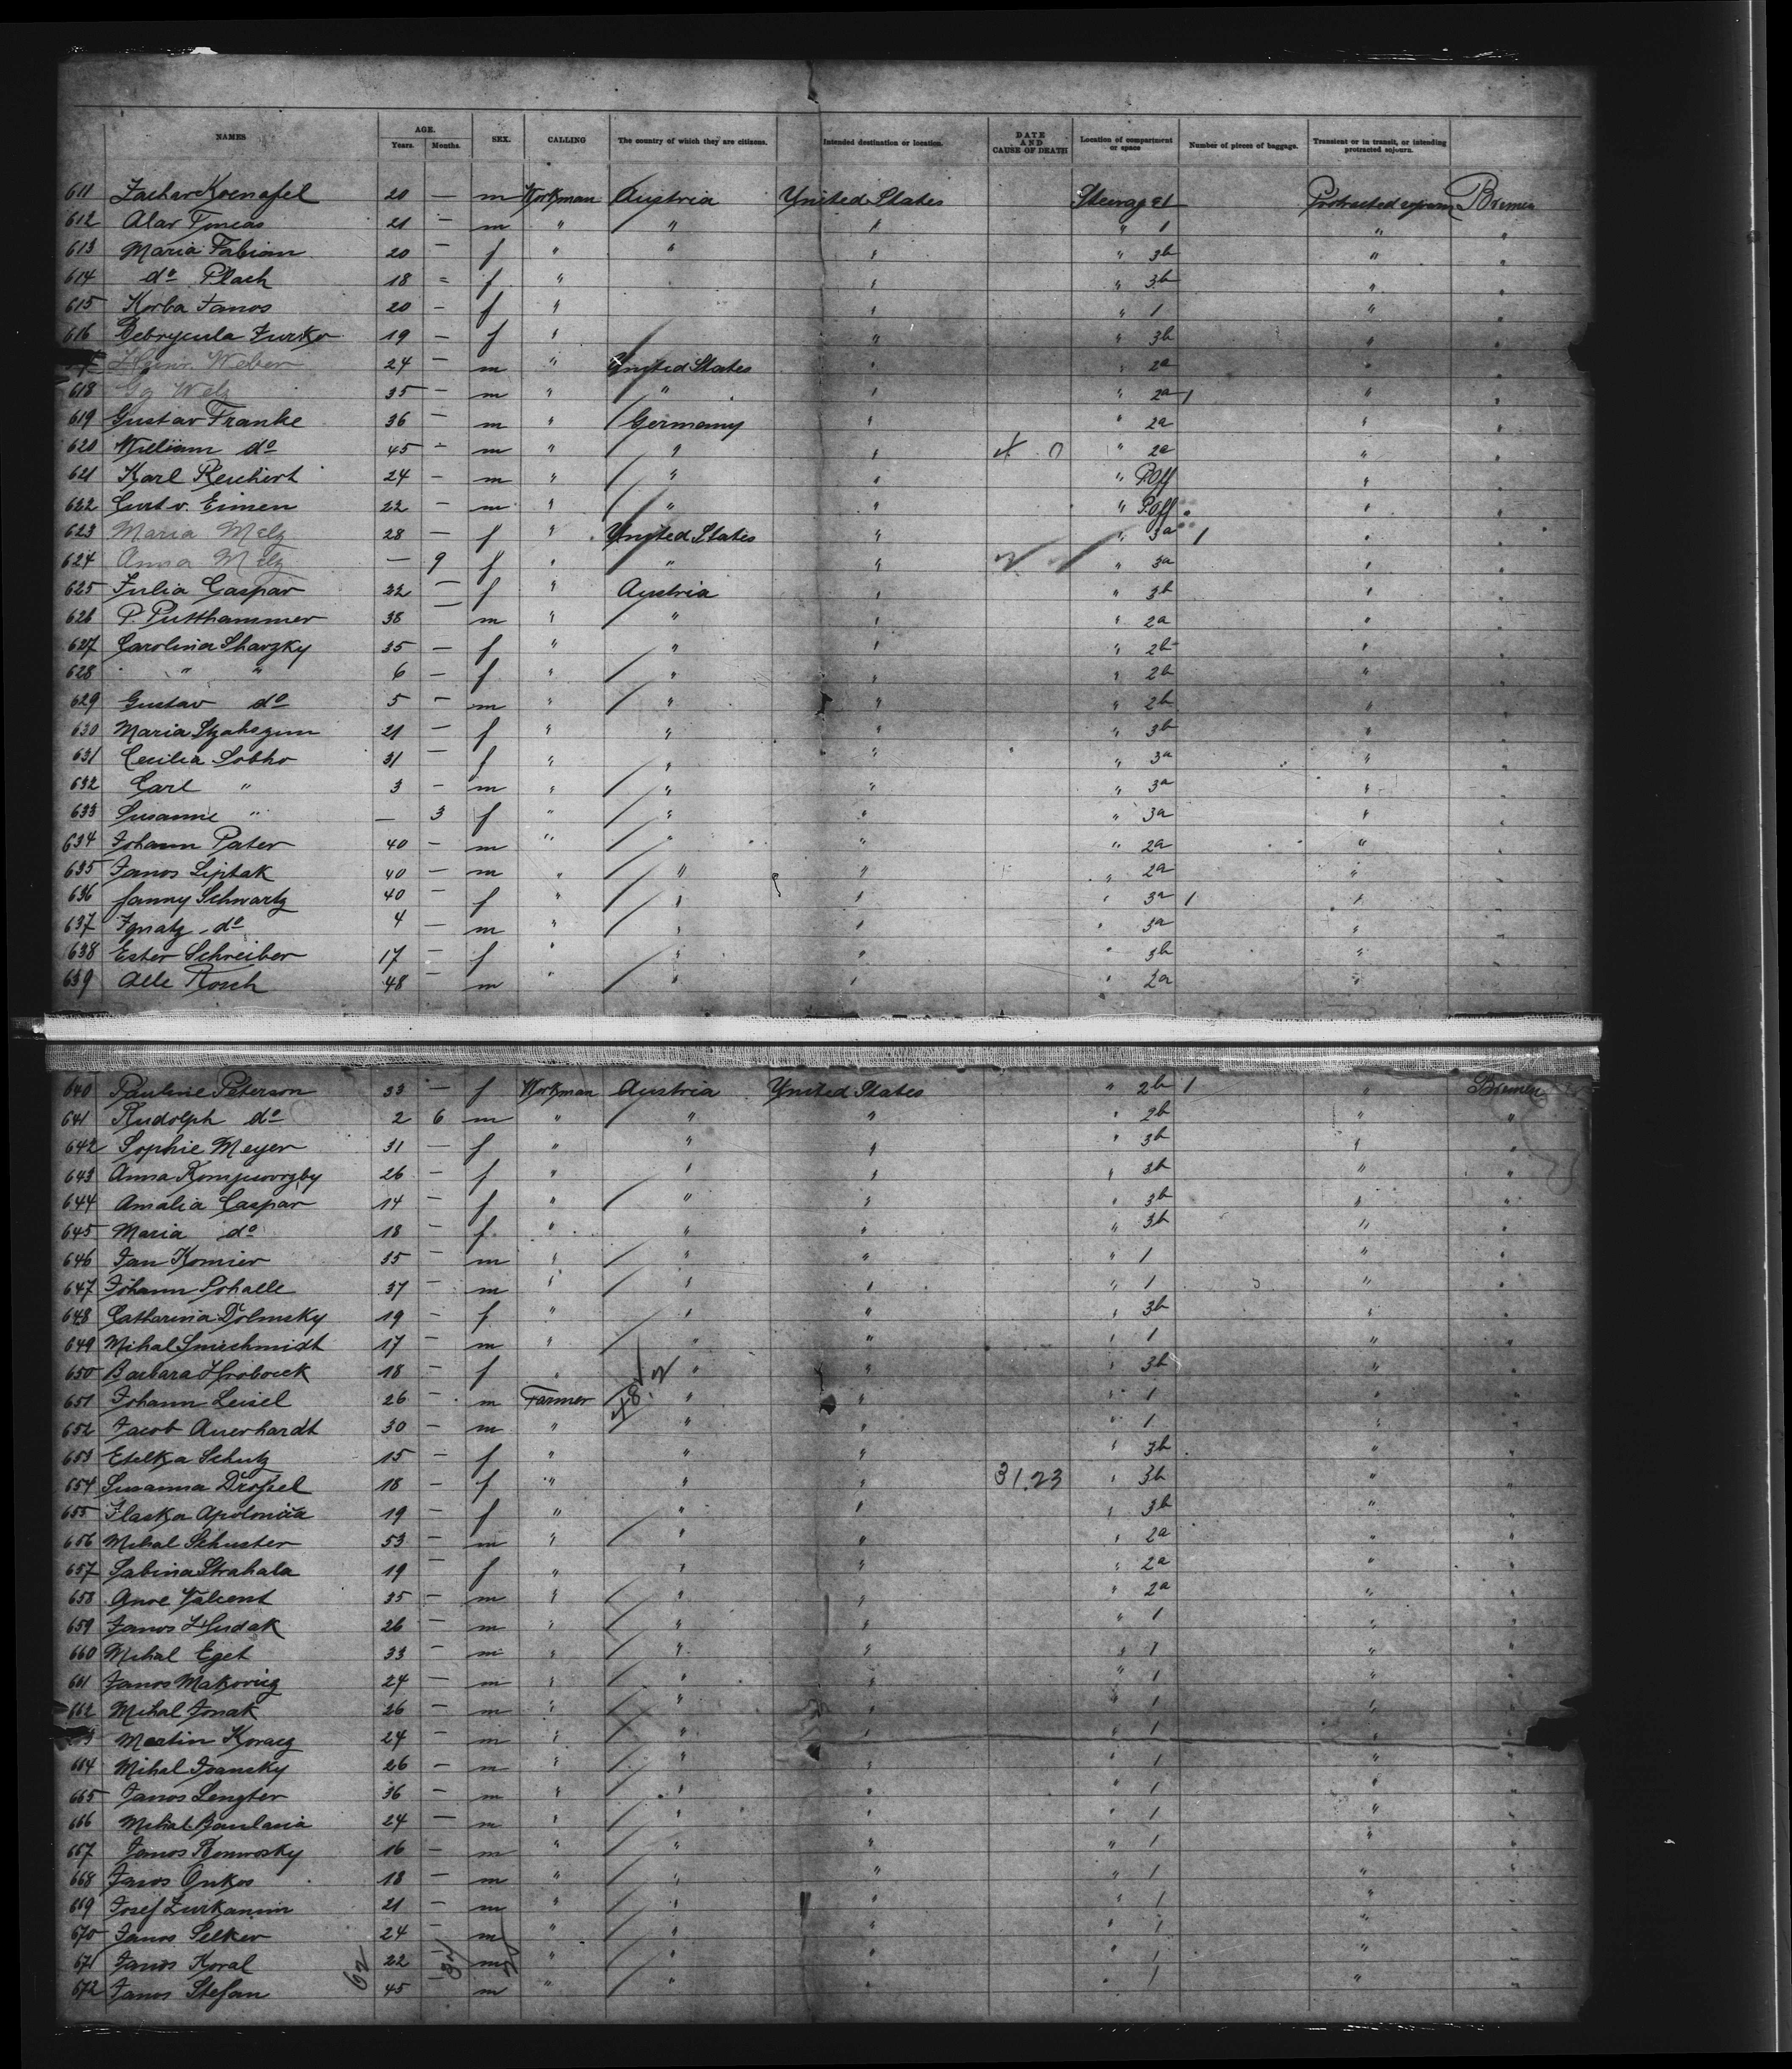 NAMES AGE. Years. Months. SEX. CALLING The country of which they are citizens. Intended destination or location. DATE AND CAUSE OF DEATH Location of compartment or space Number of pieces of baggage. Transient or in transit, or intending protracted sojourn.
611 20 — m Workman Austria United States Steerage 1 Protracted Bremen
612 21 — m " " " " 1 " "
613 Maria Fabian 20 — f " " " " 3b " "
614 do Plach 18 = f " " " 3b " "
615 Korba Janos 20 — f " " " 1 " "
616 19 — f " " " 3b " "
Weber 24 — m " United States " " 2a " "
618 35 — m " " " " 2a 1 " "
619 Gustav Franke 36 — m " Germany " " 2a " "
620 William do 45 — m " " " " 2a " "
621 Karl Reichert 24 — m " " " " P.Off " "
622 Curt v. Eimen 22 — m " " " " P.Off " "
623 Maria Melz 28 — f " United States " " 3a 1 " "
624 Anna Melz — 9 f " " " " 3a " "
625 Julia Caspar 22 — f " Austria " " 3b " "
626 P. Putthammer 38 — m " " " " 2a " "
627 Carolina 35 — f " " " " 2b " "
628 " " 6 — f " " " " 2b " "
629 Gustav do 5 — m " " " " 2b " "
630 Maria 21 — f " " " " 3b " "
631 Cecilia Sobho 31 — f " " " " 3a " "
632 Carl " 3 — m " " " " 3a " "
633 Susanne " — 3 f " " " " 3a " "
634 Johann Pater 40 — m " " " " 2a " "
635 Janos Liptak 40 — m " " " " 2a " "
636 Fanny Schwartz 40 — f " " " " 3a 1 " "
637 Ignatz do 4 — m " " " " 3a " "
638 Ester Schreiber 17 — f " " " " 3b " "
639 Rosch 48 — m " " " " 2a " "
640 Pauline Peterson 33 — f Workman Austria United States " 2b 1 " Bremen
641 Rudolph do 2 6 m " " " " 2b " "
642 Sophie Meyer 31 — f " " " " 3b " "
643 Anna 26 — f " " " " 3b " "
644 Amalia Caspar 14 — f " " " " 3b " "
645 Maria do 18 — f " " " " 3b " "
646 Jan Komier 35 — m " " " " 1 " "
647 Johann 37 — m " " " " 1 " "
648 Catharina Dolinsky 19 — f " " " " 3b " "
649 Mihal 17 — m " " " " 1 " "
650 Barbara 18 — f " " " " 3b " "
651 Johann Leisel 26 — m Farmer " " " 1 " "
652 Jacob Auerhardt 30 — m " " " " 1 " "
653 Etelka Schutz 15 — f " " " " 3b " "
654 Susanna 18 — f " " " 31.23 " 3b " "
655 Apolonia 19 — f " " " " 3b " "
656 Mihal Schuster 53 — m " " " " 2a " "
657 Sabina Strahala 19 — f " " " " 2a " "
658 35 — m " " " " 2a " "
659 Janos Hudak 26 — m " " " " 1 " "
660 Mihal Eget 33 — m " " " " 1 " "
661 Janos Makovicz 24 — m " " " " 1 " "
662 Mihal Jonak 26 — m " " " " 1 " "
Martin Koracz 24 — m " " " " 1 " "
664 Mihal Ivansky 26 — m " " " " 1 " "
665 Janos Lengter 36 — m " " " " 1 " "
666 Mihal 24 — m " " " " 1 " "
667 Janos 16 — m " " " " 1 " "
668 Janos Onkos 18 — m " " " " 1 " "
669 Josef 21 — m " " " " 1 " "
670 Janos Selker 24 — m " " " " 1 " "
671 Janos Koral 22 — m " " " " 1 " "
672 Janos Stefan 45 m " " " " 1 "